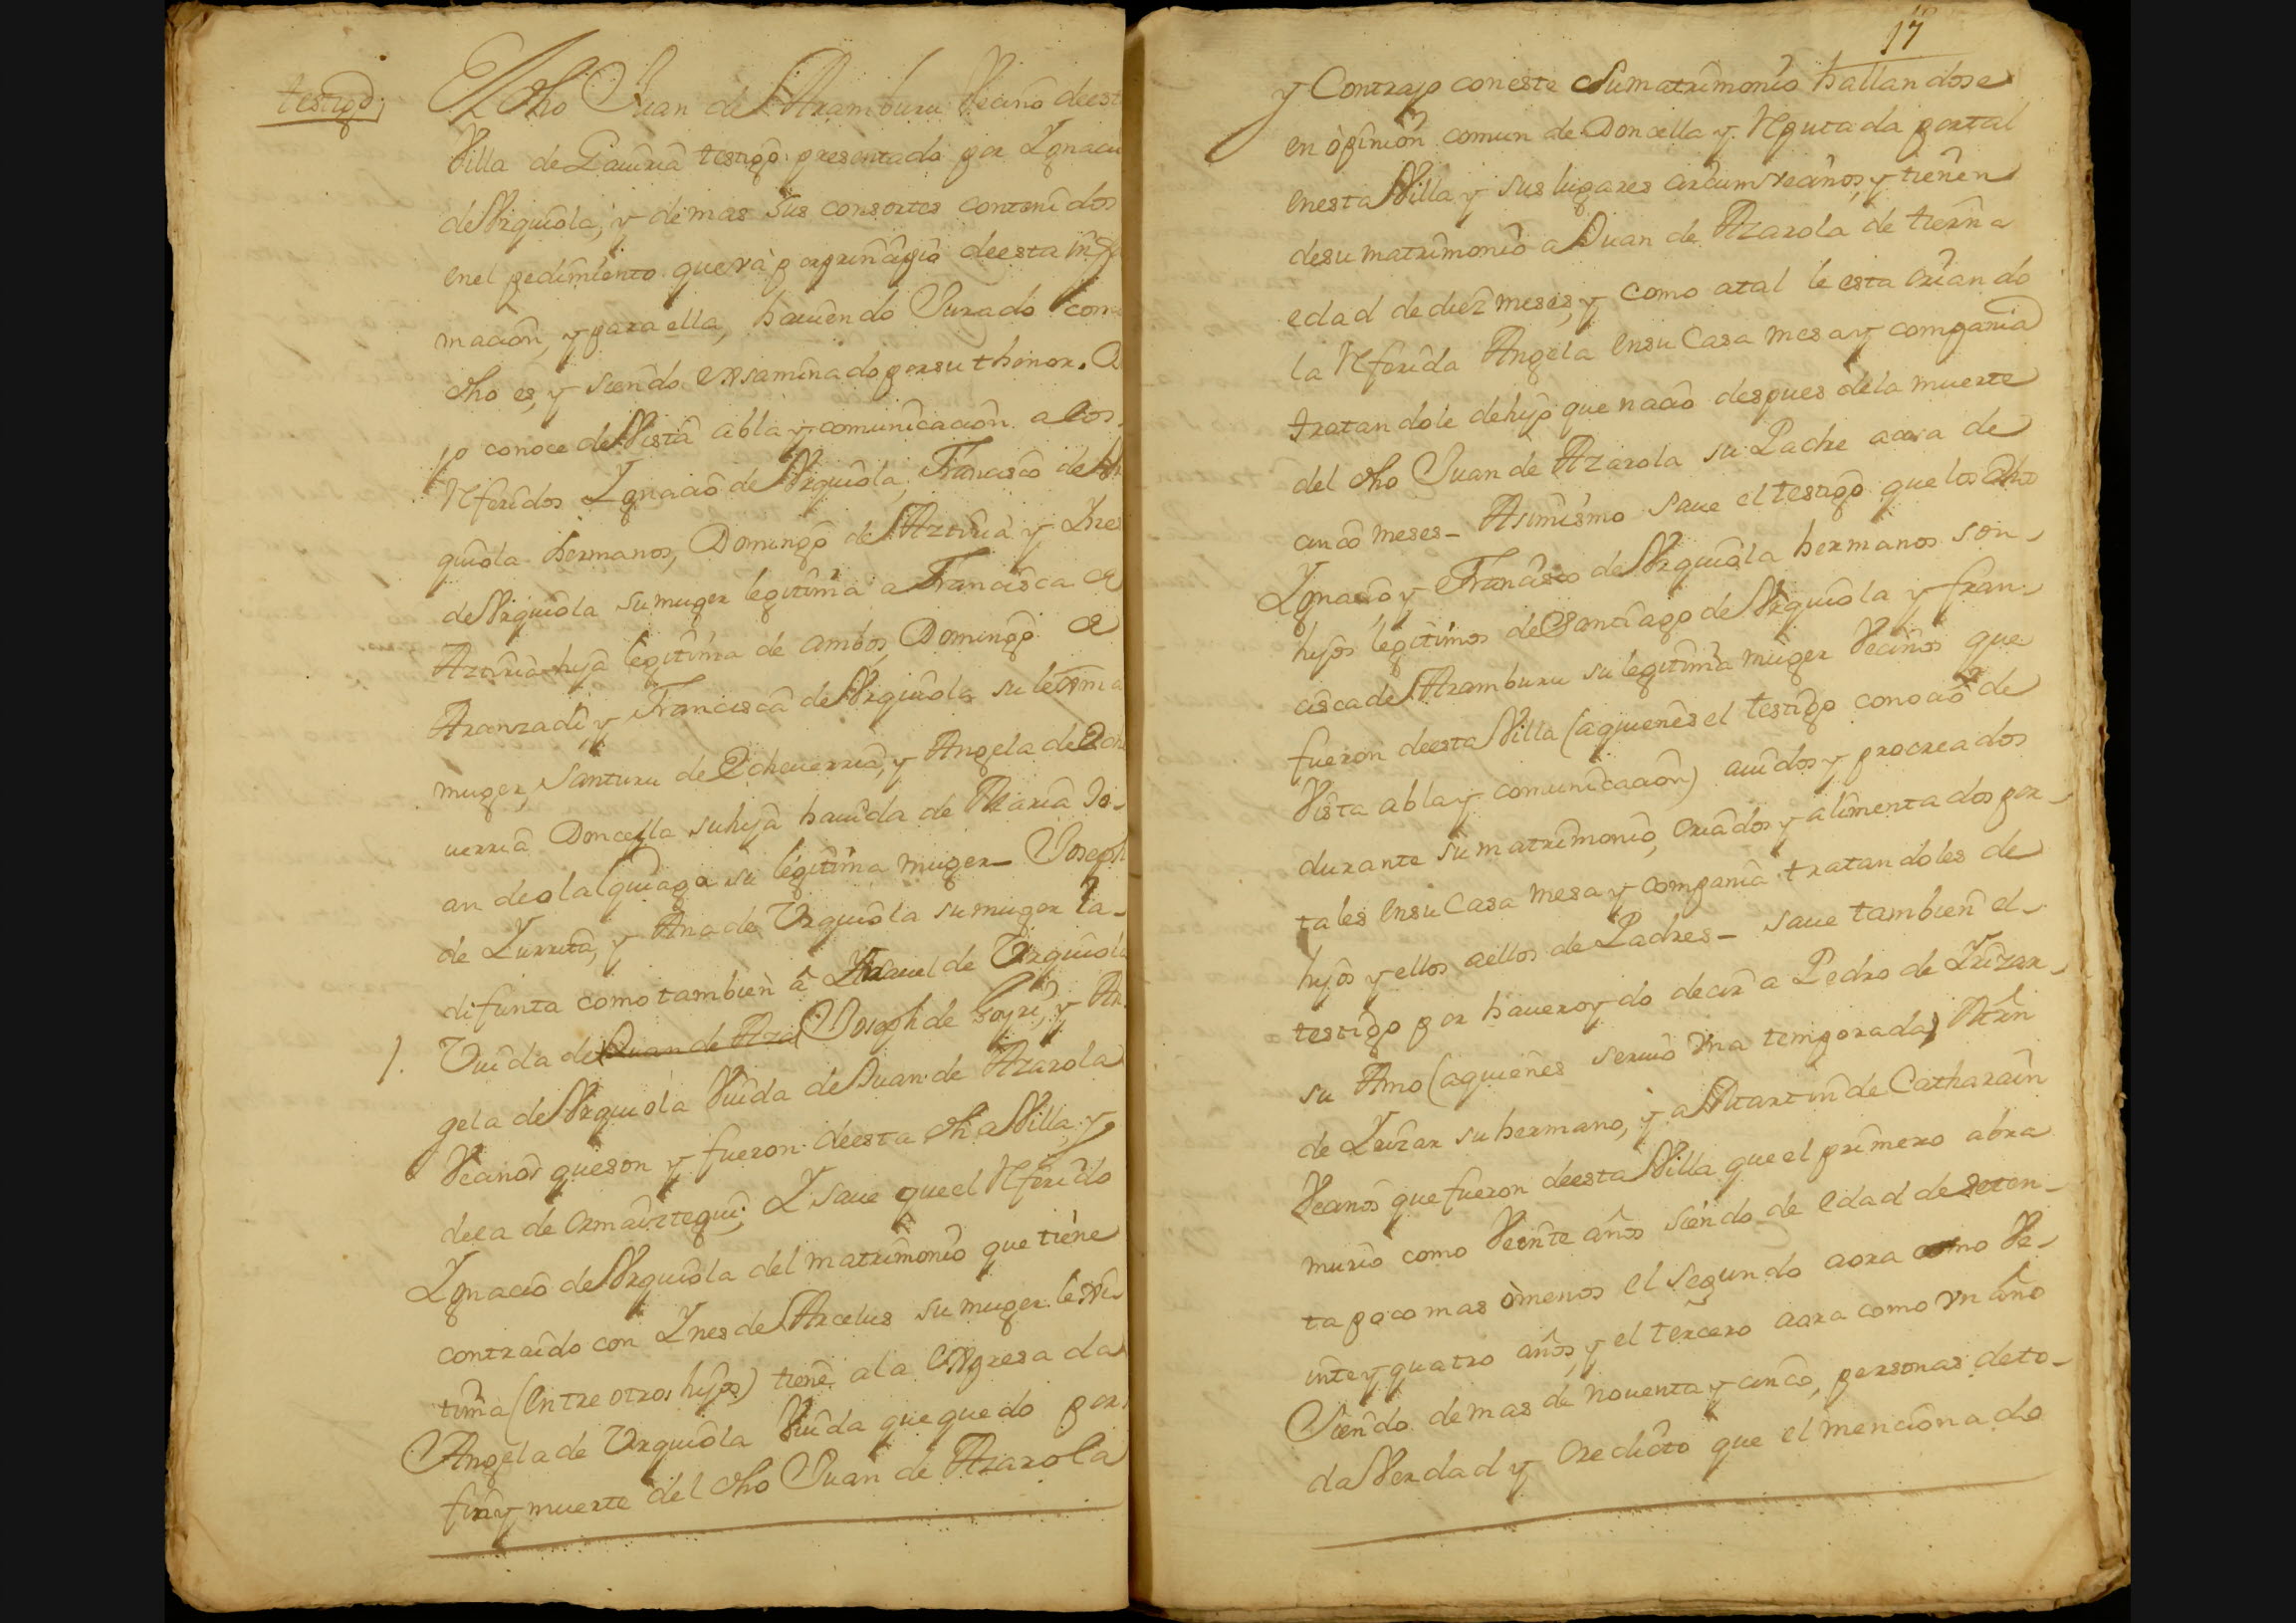 testigo,
El dho Juan de Aramburu Vecino deest
Villa de Gauiria testigo presentado por Ygnacio
de Vrquiola, y demas sus consortes contenidos
enel pedimiento que và por prinçipio deesta infor
macion, y para ella, hauiendo Jurado como
dho es, y siendo exsaminado por su thenor. D
jo conoce de Vista abla y comunicacion a los
Rferidos Ygnacio de Vrquiola, Francisco de Vr
quiola hermanos, Domingo de Aztiria y Ynes
de Vrquiola su muger legitima a Francisca de
Aztiria hija legitima de ambos, Domingo de
Aranzadi, y Francisca de Vrquiola su lexma
muger, Santuru de Echeuerria, y Angela de Eche
uerria Doncella su hija hauida de Maria Jo-
an de olalquiaga su legitima muger_ Joseph
de Yurrita, y Ana de Vrquiola su muger la-
difunta como tambien â Ysauel de Vrquiola
/. Viuda de Juan de Aza Joseph de Goyri, y An
gela de Vrquiola Viuda de Juan de Azarola
Vecinos que son y fueron deesta dha Villa, y
dela de Ormaiztegui; Y saue que el Rferido
Ygnacio de Vrquiola del matrimonio que tiene
contraido con Ynes de Arcelus su muger lexi-
tima (entre otros hijos) tiene ala expresada
Angela de Vrquiola Viuda que quedo por
fin y muerte del dho Juan de Azarola
17
y Contrajo con este su matrimonio hallandose
en òpinion comun de Doncella y Rputada portal
enesta Villa y sus lugares circumvecinos, y tienen
desu matrimonio a Juan de Azarola de tierna
edad de diez meses, y como atal le esta criando
la Rferida Angela ensu Casa mesa y compania
tratandole de hijo que nacio despues dela muerte
del dho Juan de Azarola su Padre acora de
cinco meses_ Asimismo saue el testigo que los dhos
Ygnacio y Francisco de Vrquiola hermanos son-
hijos legitimos de Santiago de Vrquiola y fran-
cisca de Aramburu su legitima muger Vecinos que
fueron deesta Villa (aquienes el testigo conocio de
Vista abla y comunicacion) auidos y procreados
durante su matrimonio, criados y alimentados por-
tales ensu Casa mesa y compania tratandoles de
hijos y ellos aellos de Padres_ saue tambien el-
testigo por haueroydo decir a Pedro de Yrizar-
su Amo (aquienes siruio vna temporada) Mrn
de Yrizar su hermano, y a Martin de Catharain
Vecinos que fueron deesta Villa que el primero abra
murio como Veinte años siendo de edad de seten-
ta poco mas òmenos el segundo aora como Ve-
inte y quatro años, y el tercero aora como vn año
Siendo demas de nouenta y cinco, personas deto-
da Verdad y credicto que el mencionado